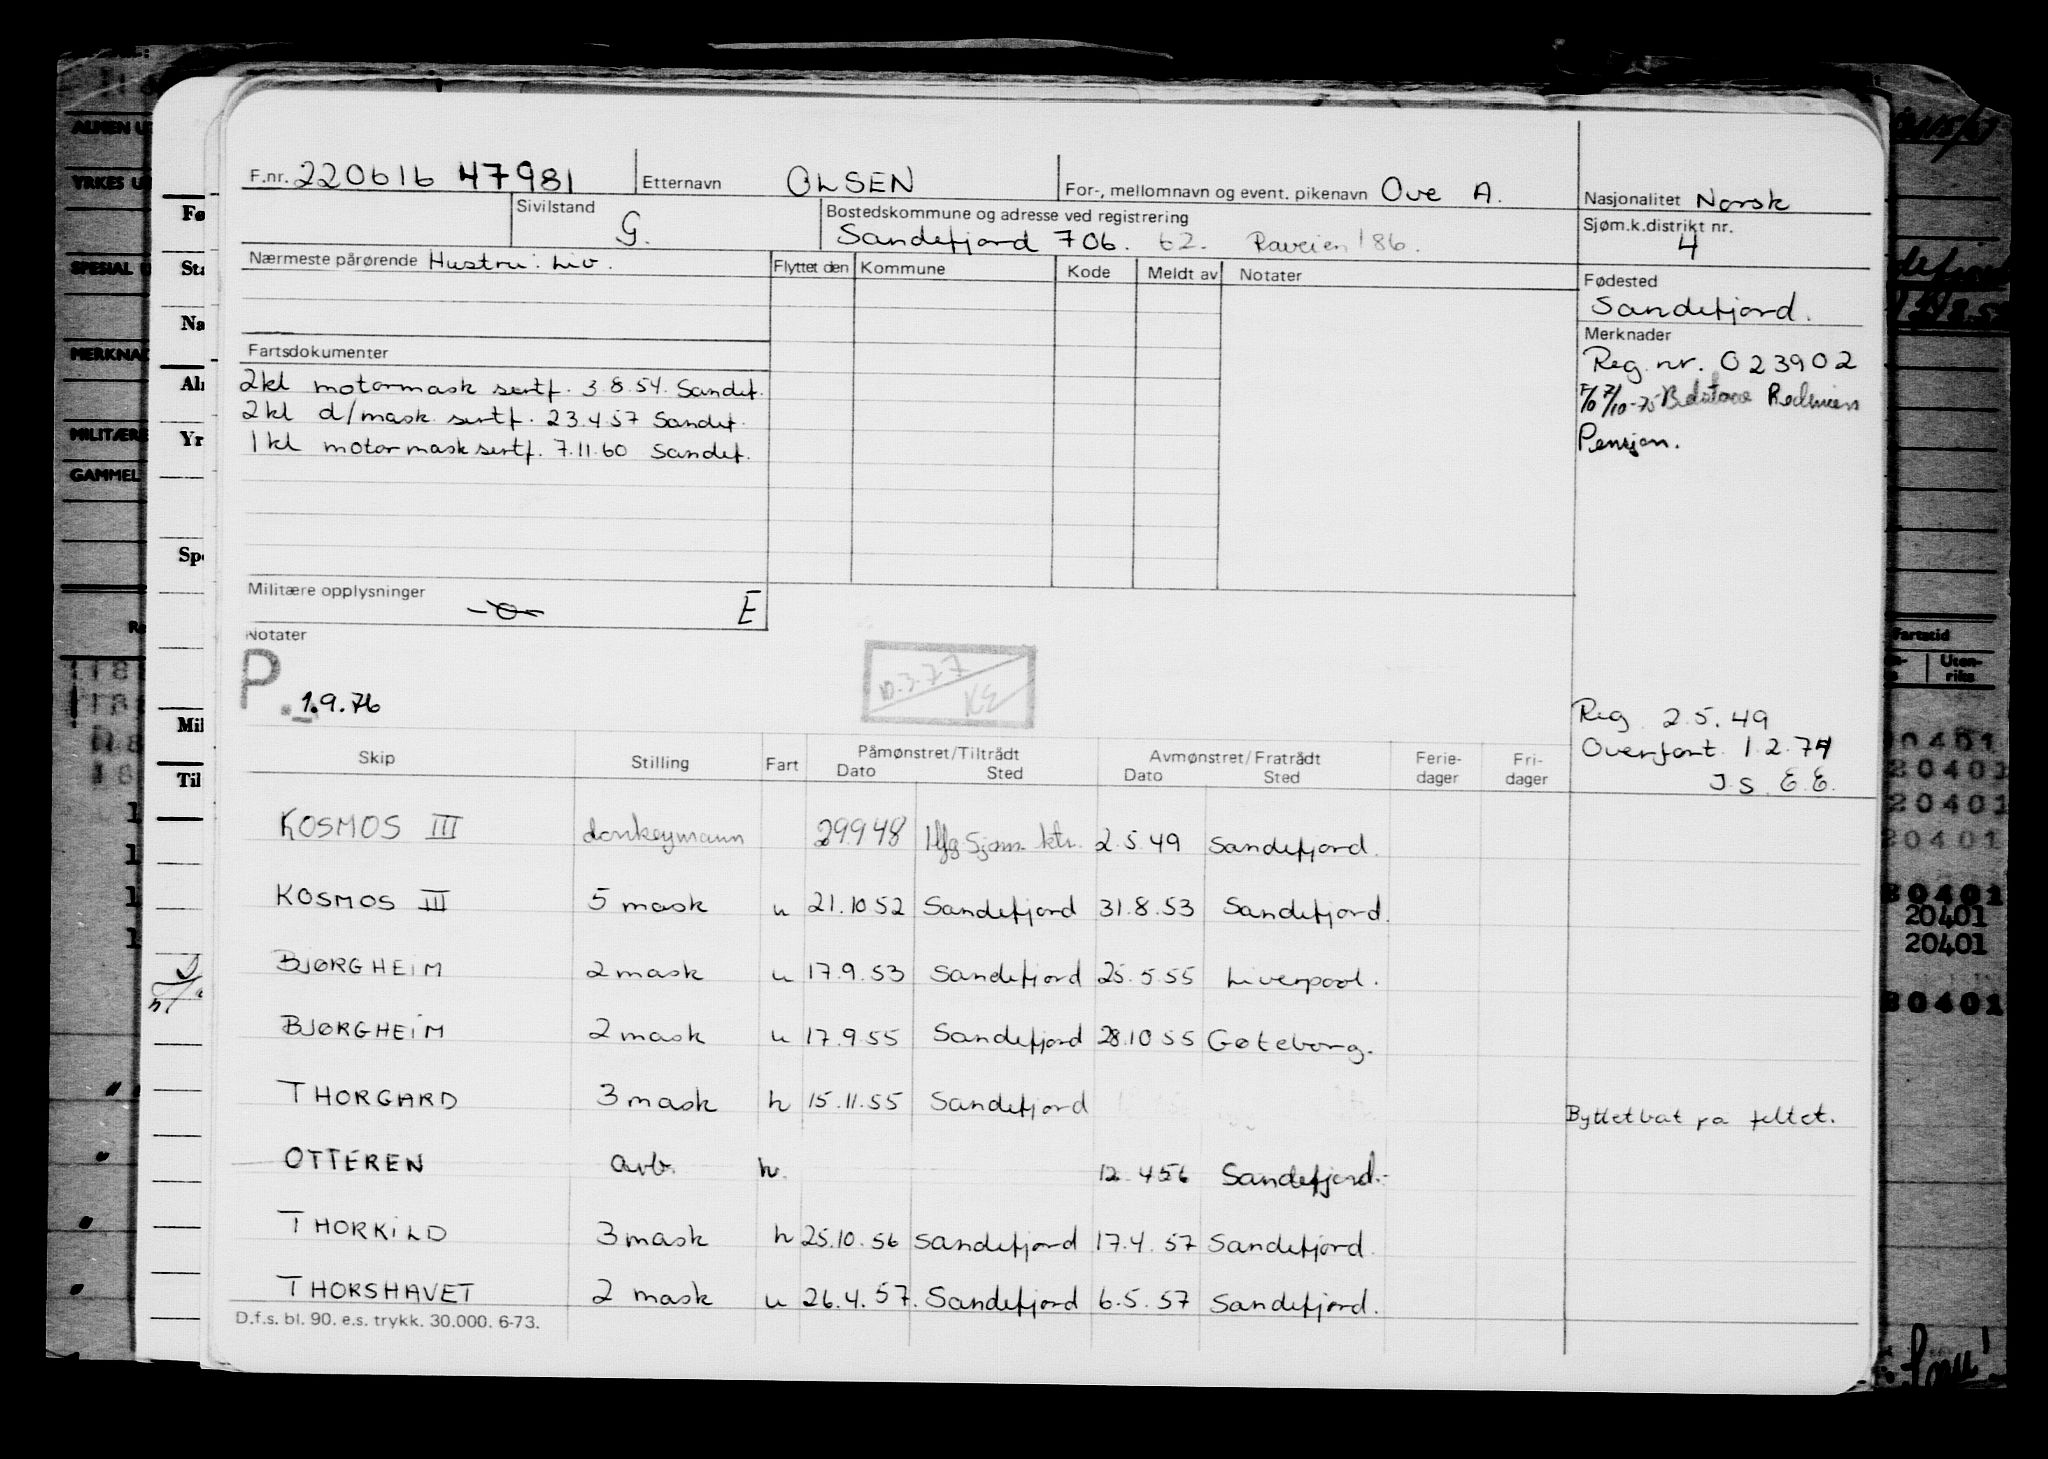 F.nr. 220616 47981 Etternavn OLSEN For-, mellomnavn og event. pikenavn Ove A. Nasjonalitet Norsk
Sivilstand G. Bostedskommune og adresse ved registrering Sjøm.k.distrikt nr. 4
Sandefjord 706. 62. Raveien 186.
Nærmeste pårørende Hustru: Liv. Flyttet den Kommune Kode Meldt av Notater Fødested
Sandefjord.
Merknader
Fartsdokumenter Reg. nr. 023902
2kl motormask sertf. 3.8.54. Sandef.
2kl d/mask. sertf. 23.4.57 Sandef.
1kl motormask sertf. 7.11.60 Sandef. Pensjon.
Militære opplysninger -0- E
Notater
P. 1.9.76
10.3.77
KE
Reg. 2.5.49
Overført 1.2.74
J.S. E.E.
Skip Stilling Fart Påmønstret/Tiltrådt Avmønstret/Fratrådt Ferie- Fri-
Dato Sted Dato Sted dager dager
KOSMOS III donkeymann 29948 Ifg Sjøm. ktr. 2.5.49 Sandefjord.
KOSMOS III 5 mask u 21.10 52 Sandefjord 31.8.53 Sandefjord.
BJØRGHEIM 2 mask u 17.9.53 Sandefjord 25.5.55 Liverpool.
BJØRGHEIM 2 mask u 17.9.55 Sandefjord 28.10 55 Gøteborg.
THORGARD 3 mask h 15.11.55 Sandefjord Byttet båt på feltet.
OTTEREN arb. h. 12.4 56 Sandefjord.-
THORKILD 3 mask h 25.10.56 Sandefjord 17.4.57 Sandefjord.
THORSHAVET 2 mask u 26.4.57. Sandefjord 6.5.57 Sandefjord.
D.f.s. bl. 90. e.s. trykk. 30.000. 6-73.
ALMEN U
YRKES U
SPESIAL U
MERKNAD
MILITÆRE
GAMMEL
Fø
Sta
Na
Al
Yr
Spe
Mil
Til
Fartstid
Uten-
riks
20401
20401
20401
20401
20401
20401
20401
20401